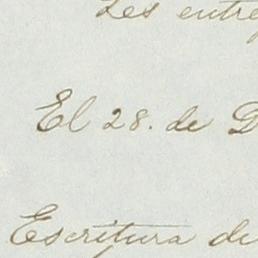 Les entre
El 28. de D
Escritura de